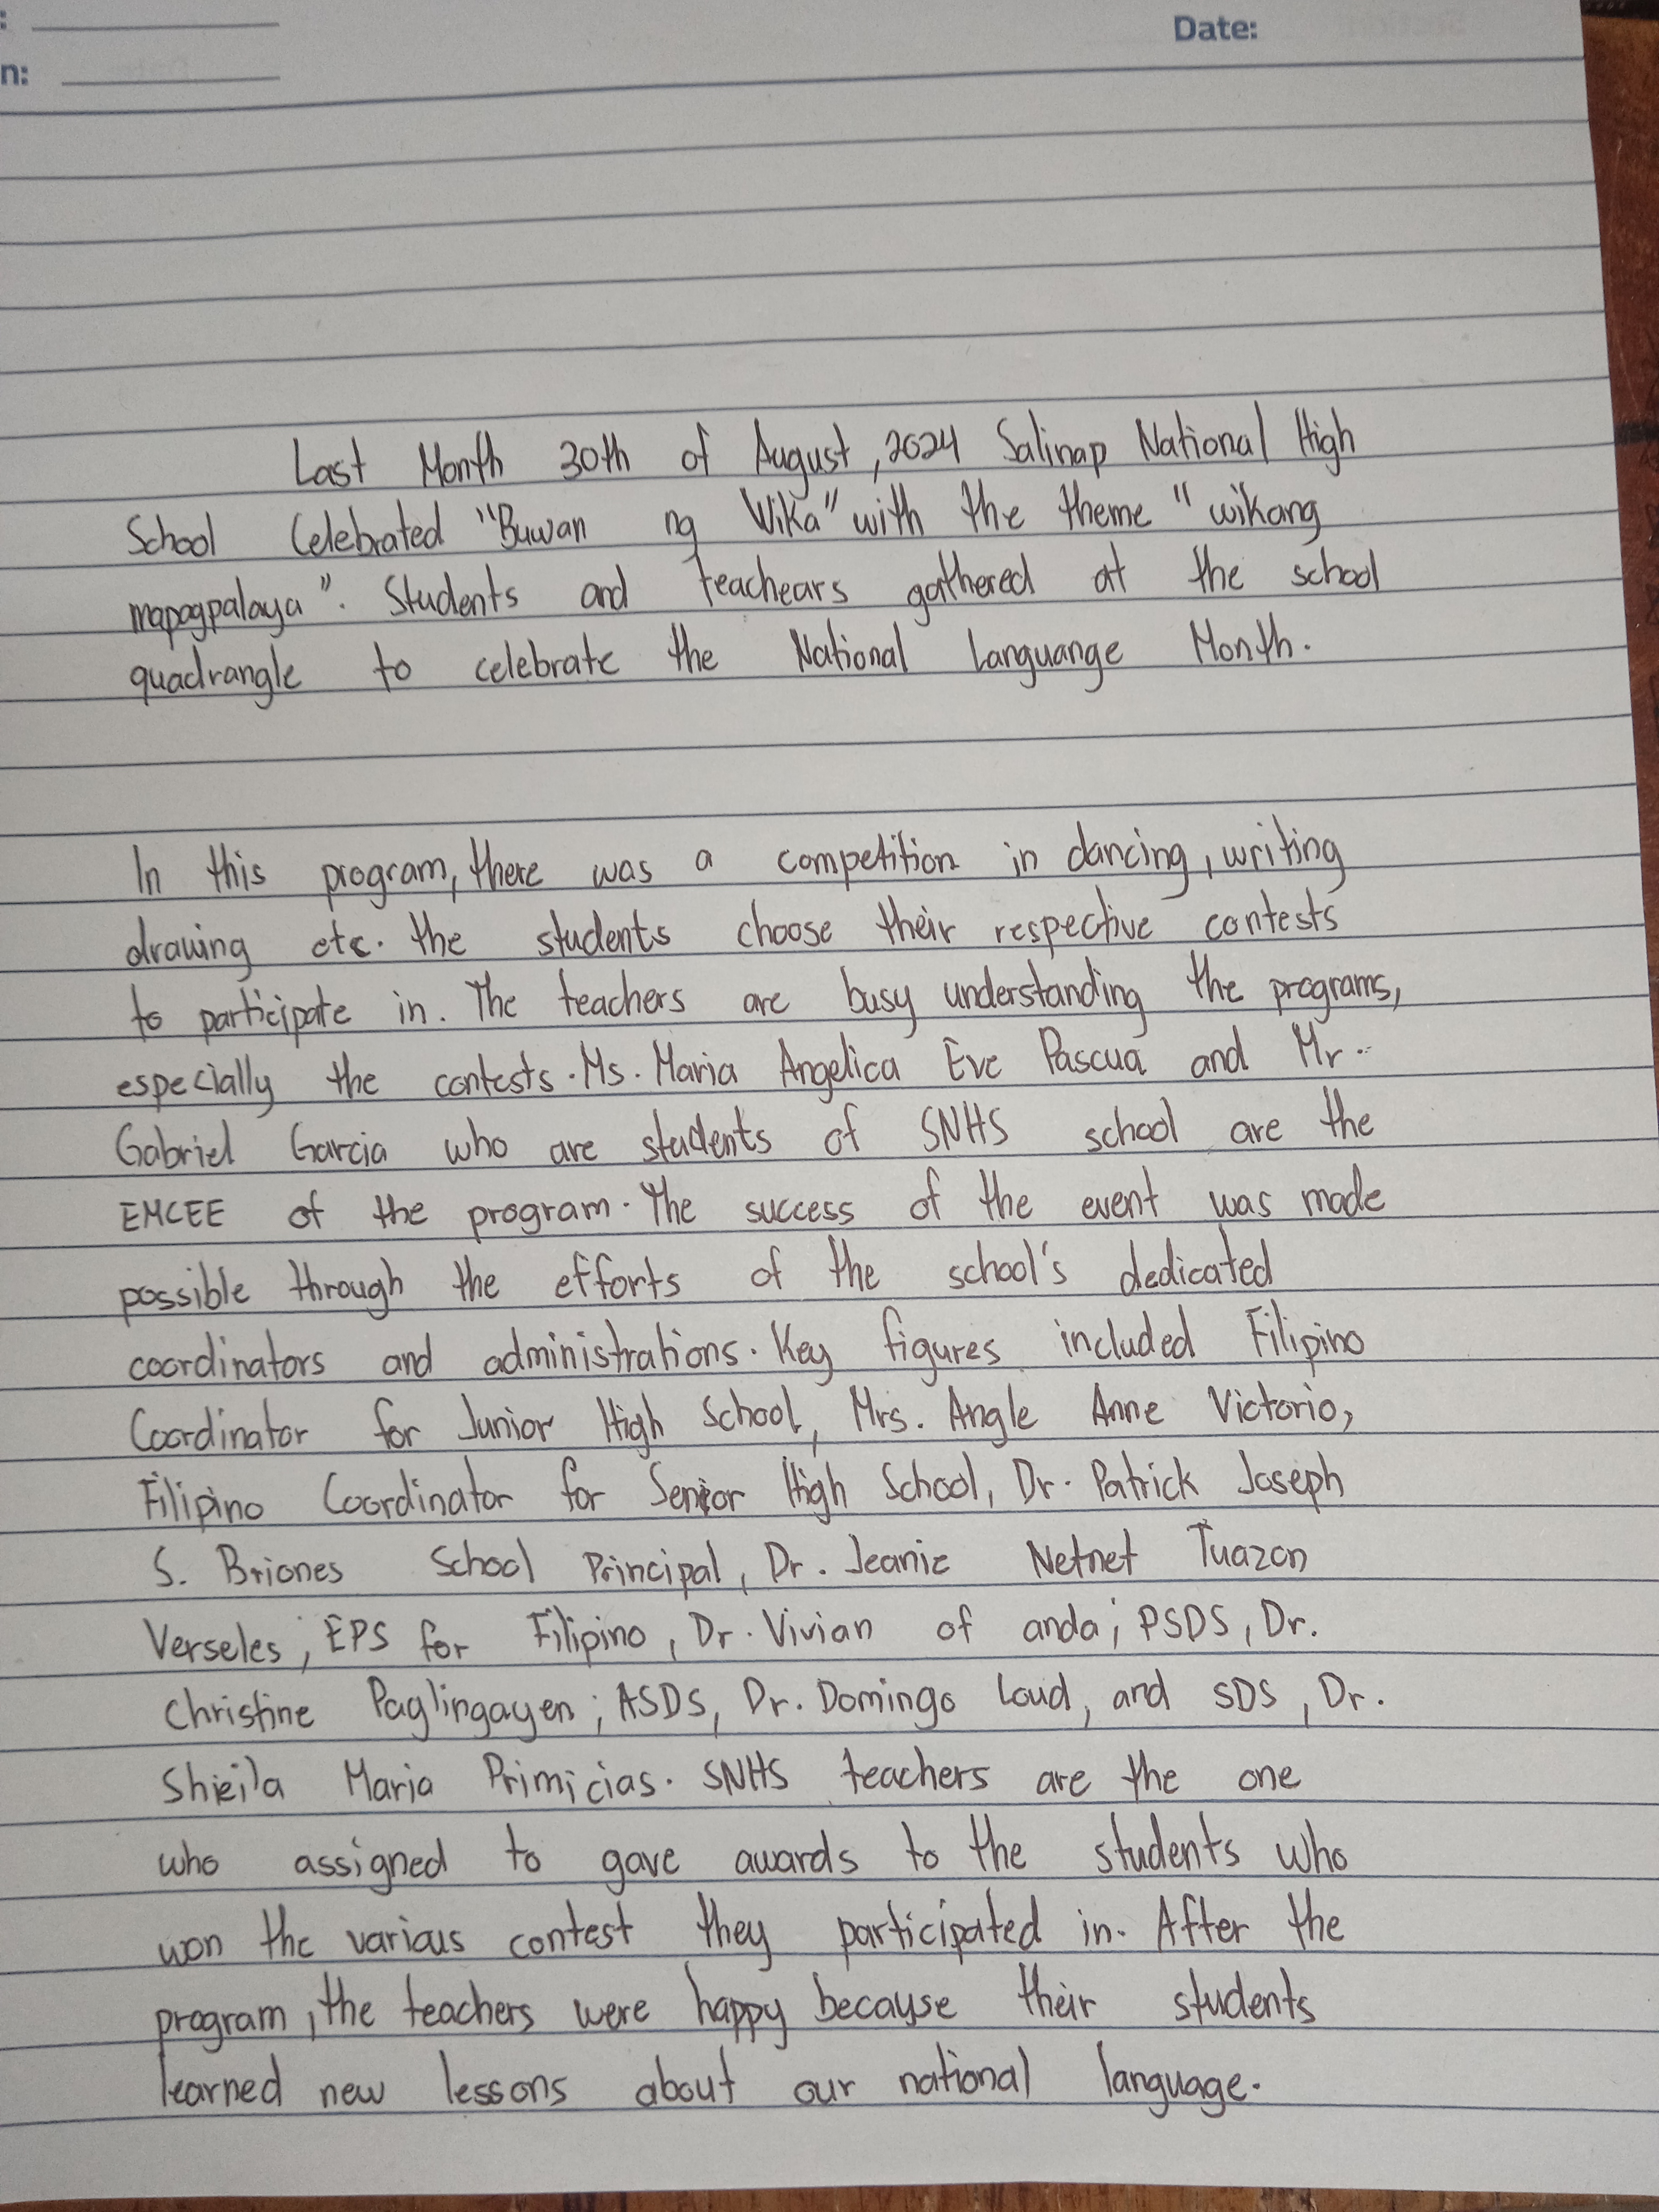 :
Date:
n:
Last Month 30th of August, 2024 Salinap National High
School Celebrated "Buwan ng Wika" with the theme "wikang
mapagpalaya". Students and teachears gathered at the school
quadrangle to celebrate the National Languange Month.
In this program, there was a competition in dancing, writing
drawing etc. the students choose their respective contests
to participate in. The teachers are busy understanding the programs,
especially the contests. Ms. Maria Angelica Eve Pascua and Mr.
Gabriel Garcia who are students of SNHS school are the
EMCEE of the program. The success of the event was made
possible through the efforts of the school's dedicated
coordinators and administrations. Key figures included Filipino
Coordinator for Junior High School, Mrs. Angle Anne Victorio,
Filipino Coordinator for Senior High School, Dr. Patrick Joseph
S. Briones School Principal, Dr. Jeanie Netnet Tuazon
Verseles; EPS for Filipino, Dr. Vivian of anda; PSDS, Dr.
Christine Paglingayen; ASDS, Dr. Domingo Loud, and SDS, Dr.
Sheila Maria Primicias. SNHS teachers are the one
who assigned to gave awards to the students who
won the various contest they participated in. After the
program, the teachers were happy because their students
learned new lessons about our national language.